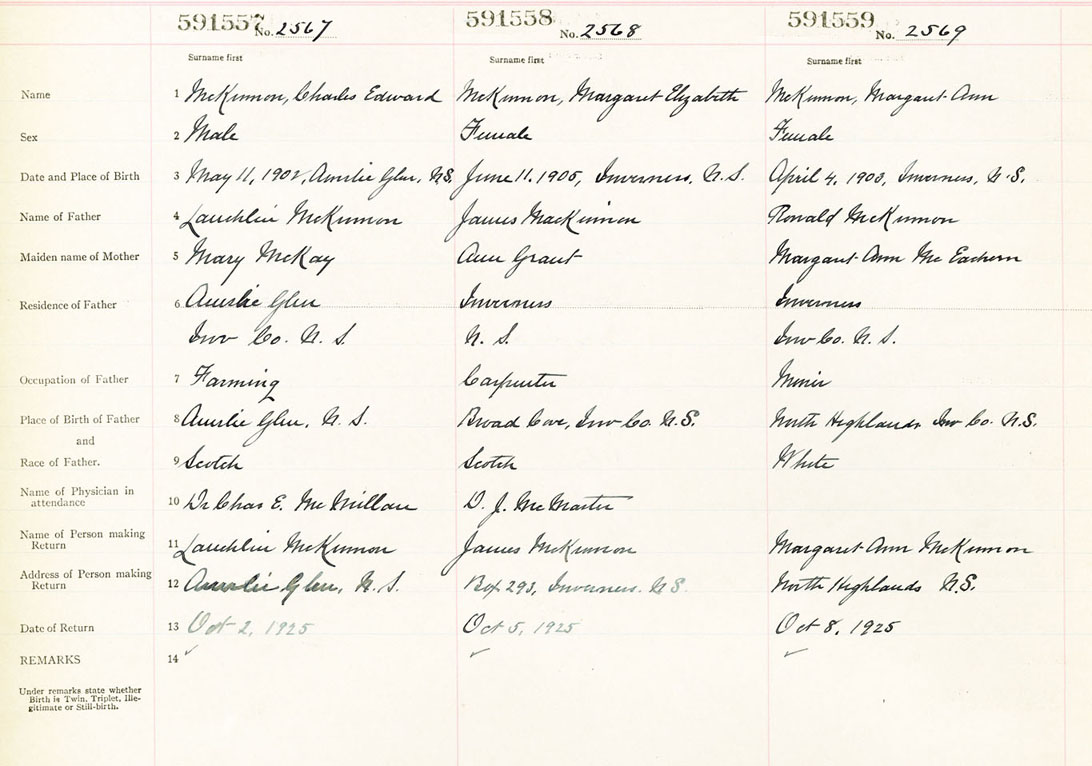 591557 No. 2567 591558 No. 2568 591559 No. 2569
Surname first Surname first Surname first
Name 1 McKinnon, Charles Edward McKinnon, Margaret Elizabeth McKinnon, Margaret Ann
Sex 2 Male Female Female
Date and Place of Birth 3 May 11, 1902, Glen, N.S. June 11. 1905, Inverness, N.S. April 4, 1903, Inverness, N.S.
Name of Father 4 Lauchlin McKinnon James MacKinnon Ronald McKinnon
Maiden name of Mother 5 Mary McKay Ann Grant Margaret Ann Mc Eachern
Residence of Father 6 Glen Inverness Inverness
Inv Co. N. S. N. S. Inv Co. N. S.
Occupation of Father 7 Farming Carpenter Miner
Place of Birth of Father 8 Glen, N. S. Broad Cove, Inv Co. N.S. North Highlands Inv Co. N.S.
and
Race of Father. 9 Scotch Scotch White
Name of Physician in
attendance 10 Dr Chas E. Mc Millan D. J. Mc Master
Name of Person making
Return 11 Lauchlin McKinnon James McKinnon Margaret Ann McKinnon
Address of Person making
Return 12 Glen, N. S. Box 293, Inverness. N.S. North Highlands N.S.
Date of Return 13 Oct 2, 1925 Oct 5, 1925 Oct 8, 1925
REMARKS 14
Under remarks state whether
Birth is Twin, Triplet, Ille-
gitimate or Still-birth.